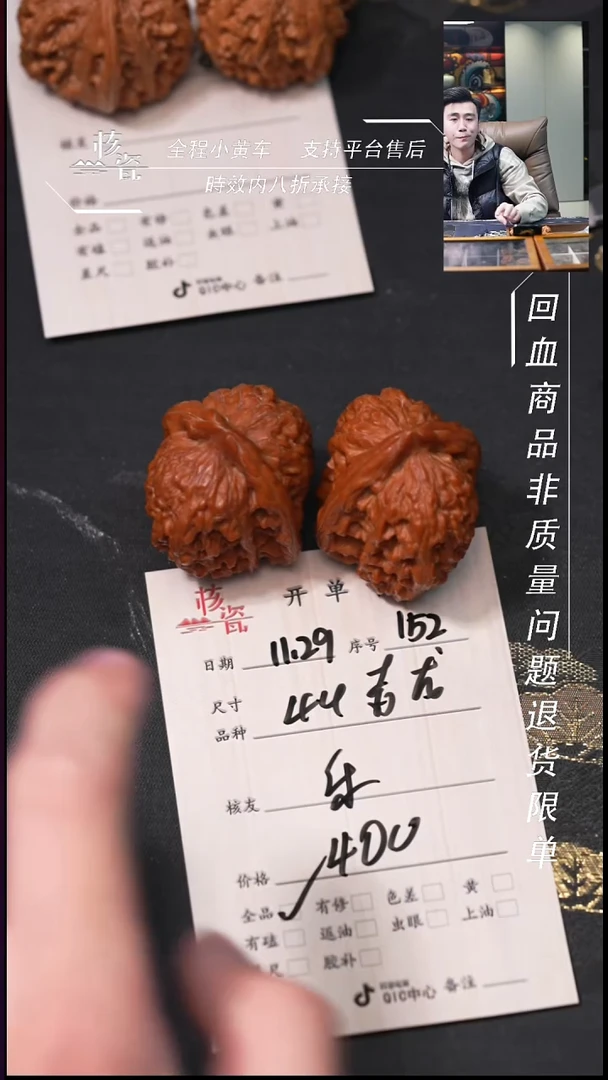 核瓷
全程小黄车 支持平台售后
時效内八折承接
价格
全品 有修 色差 黄
有磕 返油 虫眼 上油
差尺 胶补
QIC中心 备注
回血商品非质量问题退货限单
核瓷
开单
日期 11.29 序号 152
尺寸 44 青龙
品种
核友 乐
价格 400
全品 ✓ 有修 色差 黄
有磕 返油 虫眼 上油
尺 胶补
QIC中心 备注